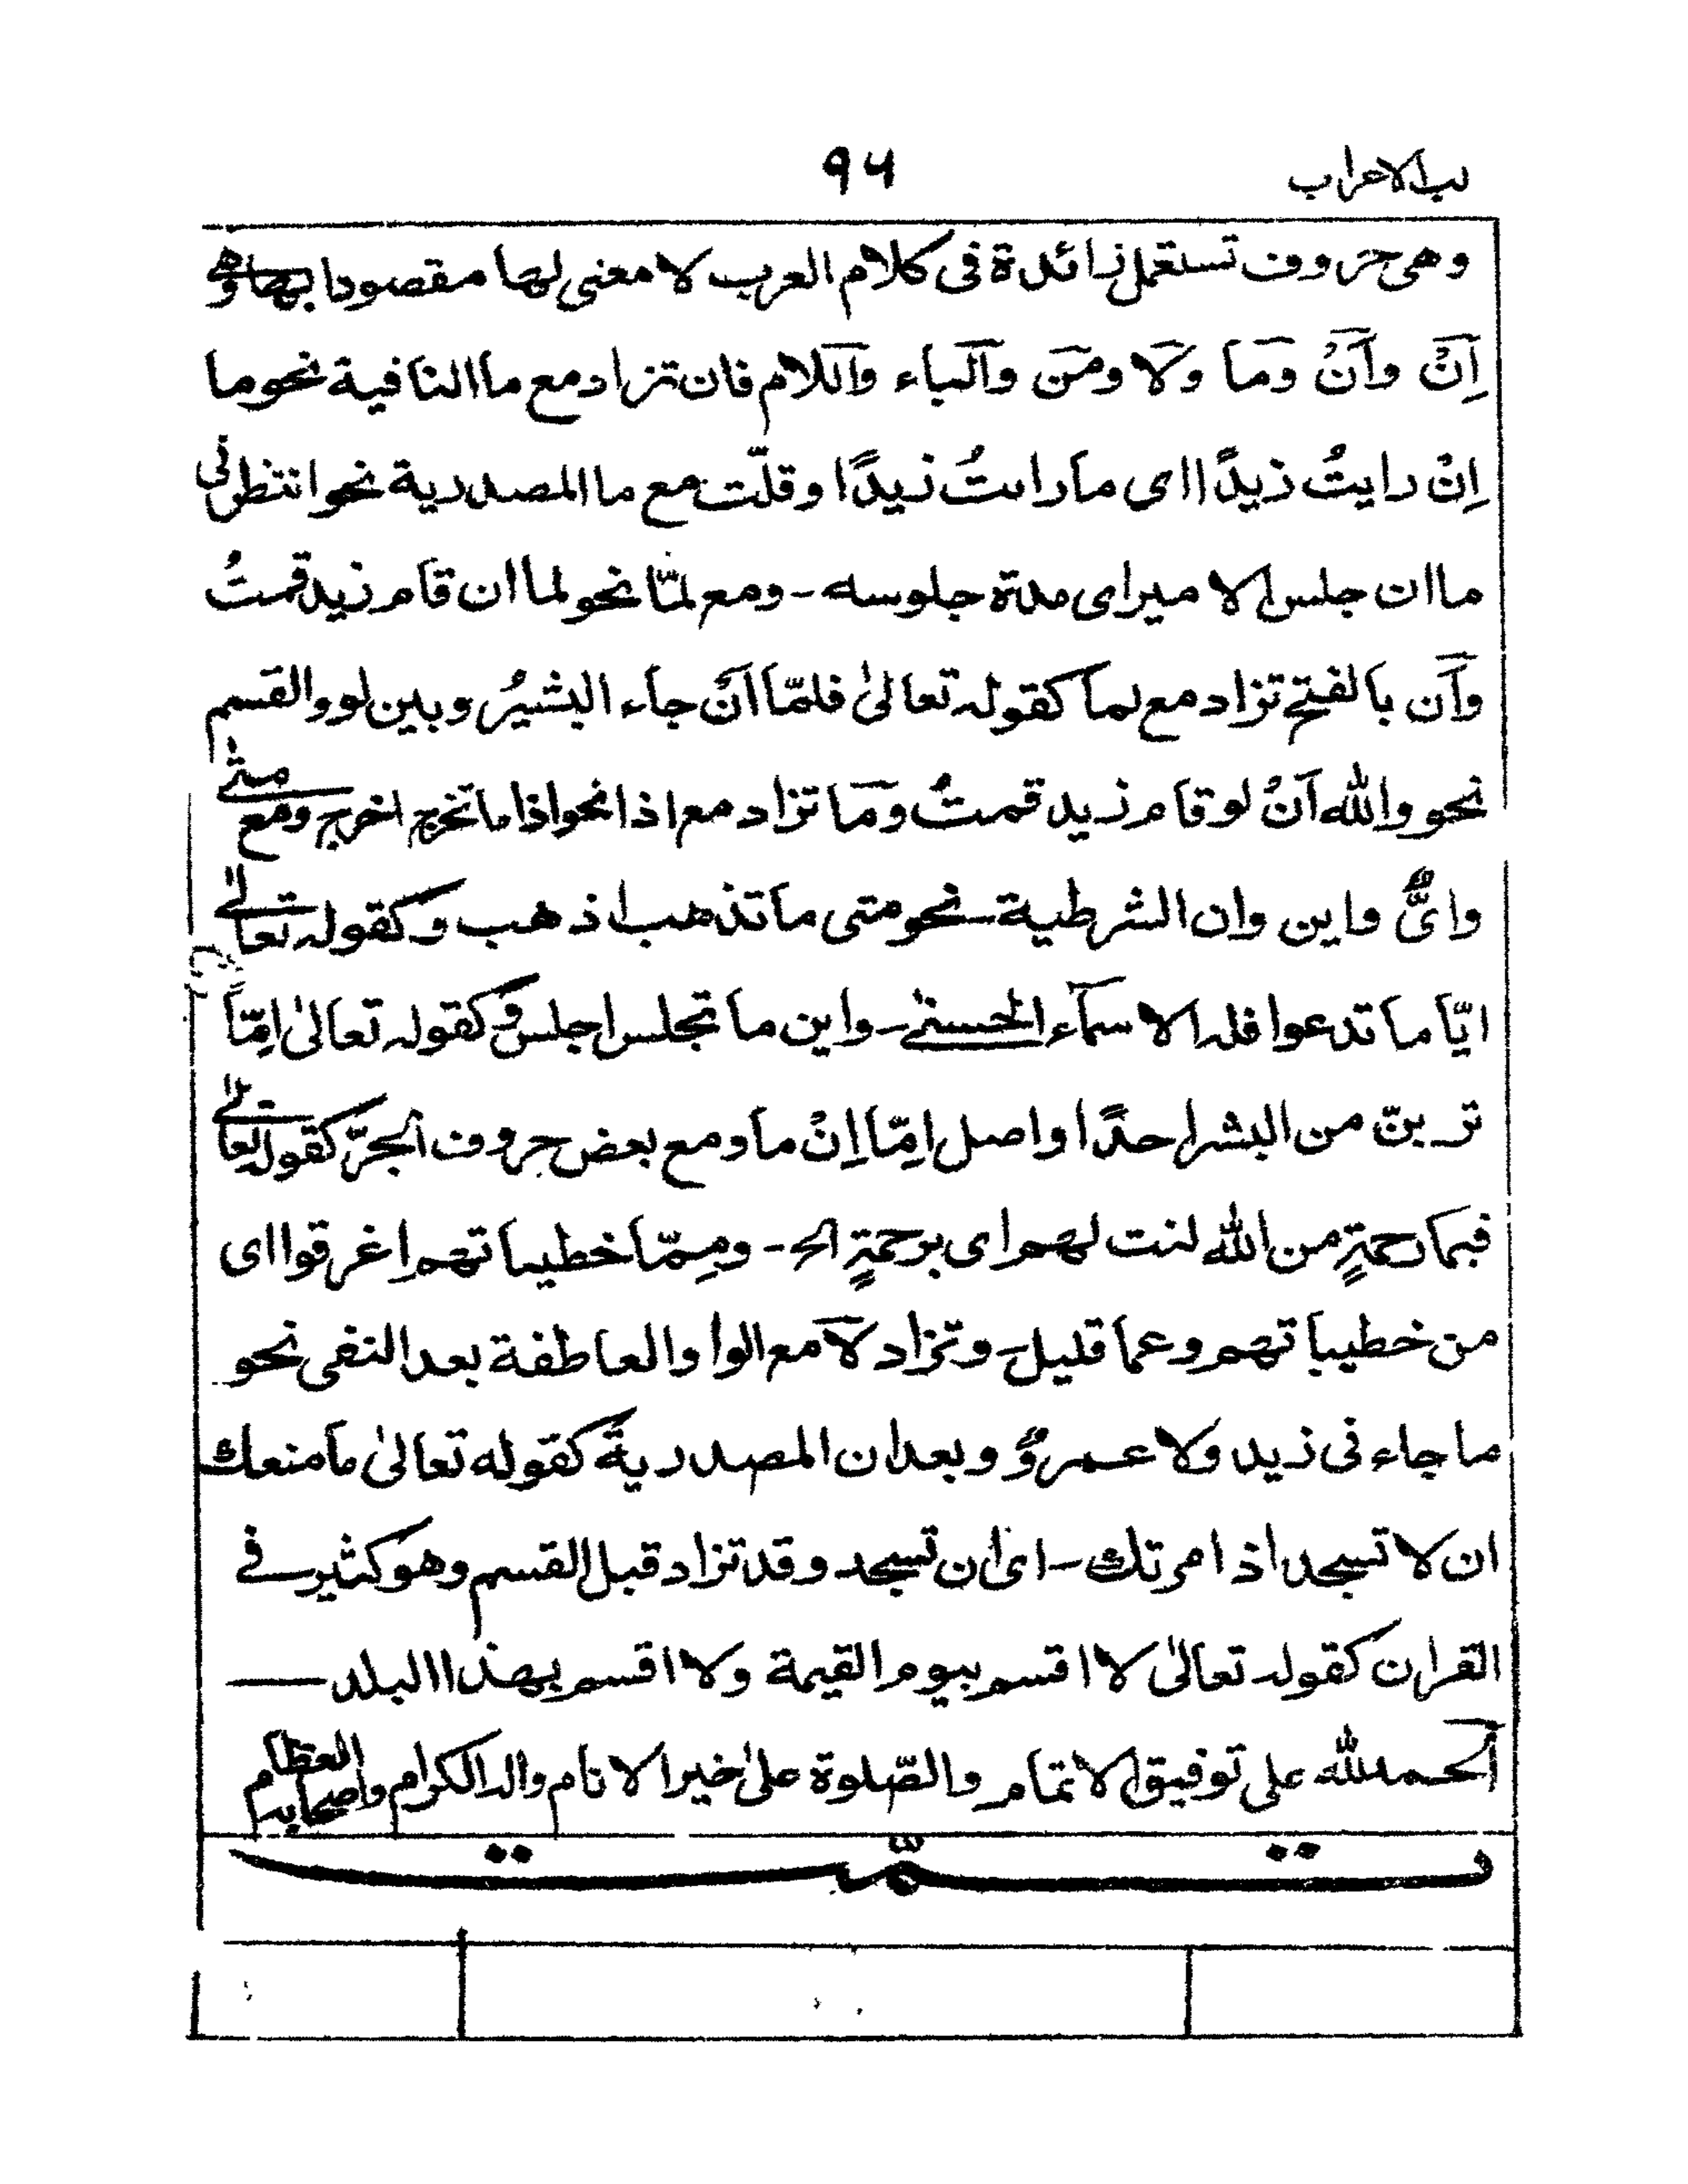 لب الاعراب ٩٦
وهى حروف تستعمل زائدة فى كلام العرب لا معنى لها مقصودا بها وهى
اِنْ وأَنْ وَما وَلا ومَن والباء واللام فان تزاد مع ما النافية نحو ما
اِنْ رايتُ زيدًا اى ما رايتُ زيدًا وقلّت مع ما المصدرية نحو انتظرنى
ما ان جلس الا ميراى مدة جلوسه - ومع لمّا نحو لما ان قام زيد قمتُ
وأن بالفتح تزاد مع لما كقوله تعالىٰ فلمّا أنْ جاء البشيرُ وبين لو والقسم
نحو والله أنْ لو قام زيد قمتُ وما تزاد مع اذا نحو اذا ما تخرج اخرج ومع متى
واىٌّ واين وان الشرطية نحو متى ما تذهب اذهب وكقوله تعالىٰ
ايّا ما تدعوا فله الاسماء الحسنى - واين ما تجلس اجلس وكقوله تعالىٰ اِمّا
ترينّ من البشر احدًا واصل اِمّا اِنْ ما ومع بعض حروف الجرّ كقوله تعالىٰ
فبما رحمةٍ من الله لنت لهم اى برحمةٍ الخ - ومِمّا خطيباتهم اغرقوا اى
من خطيباتهم وعما قليل - وتزاد لا مع الواو العاطفة بعد النفى نحو
ما جاءنى زيد ولا عمروٌ وبعد ان المصدرية كقوله تعالىٰ ما منعك
ان لا تسجد اذ امرتك - اى ان تسجد وقد تزاد قبل القسم وهو كثير فى
القران كقوله تعالىٰ لا اقسم بيوم القيمة ولا اقسم بهذا البلد
الحمد لله على توفيق الاتمام والصّلوة علىٰ خير الانام واله الكرام واصحابه العظام
تمّت